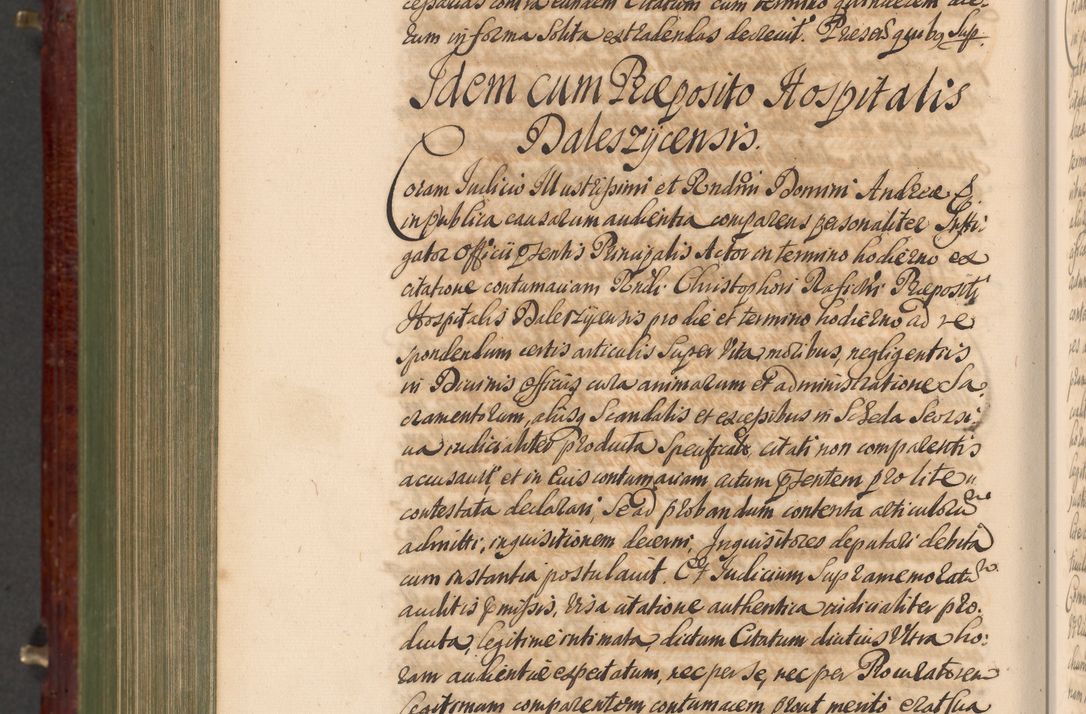 cepsalias contra eundem Citatum cum termino quindecim die-
rum in forma solita extradendas decreuit. Præsen̄ quibꝫ Sup.
Idem cum Præposito Hospitalis
Daleszycensis.
Coram Judicio Illustrissimi et Rndm̄i Domini Andreæ E.
in publica causarum audientia comparens personaliter Insti-
gator Officii p̄sentis Principalis Actor in termino hodierno ex
citatione contumaciam Rndi Christophori Præpositi
Hospitalis Daleszycensis pro die et termino hodierno ad re
spondendum certis articulis super vita, moribus, negligentiis
in Diuinis officiis cura animarum et administratione Sa-
cramentorum, aliisq scandalis et excessibus in Scheda Seorsi-
ua iudicialiter producta specificatis, citati non comparentis
accusauit et in eius contumaciam actum p̄sentem pro lite
contestata declarari, Se ad probandum contenta articulorū
admitti, inquisitionem decerni, Inquisitores deputari debita
cum instantia postulauit. Et Iudicium Supramemoratū
auditis p̄missis, visa citatione authentica iudicialiter pro-
ducta, legitime intimata, dictum Citatum diutius Vltra ho-
ram audientiæ expectatum, nec per se, nec per Procuratorem
legitimum comparentem contumacem prout merito erat sua